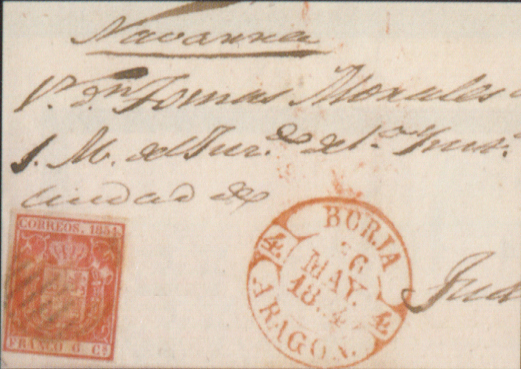 Navarra
Tomas Morales
S. M. del Juz.do de 1.a Ins.
ciudad de
CORREOS. 1854.
FRANCO 6 Cs
BORJA
4
26
MAY.
18.4
4
ARAGON.
Tud